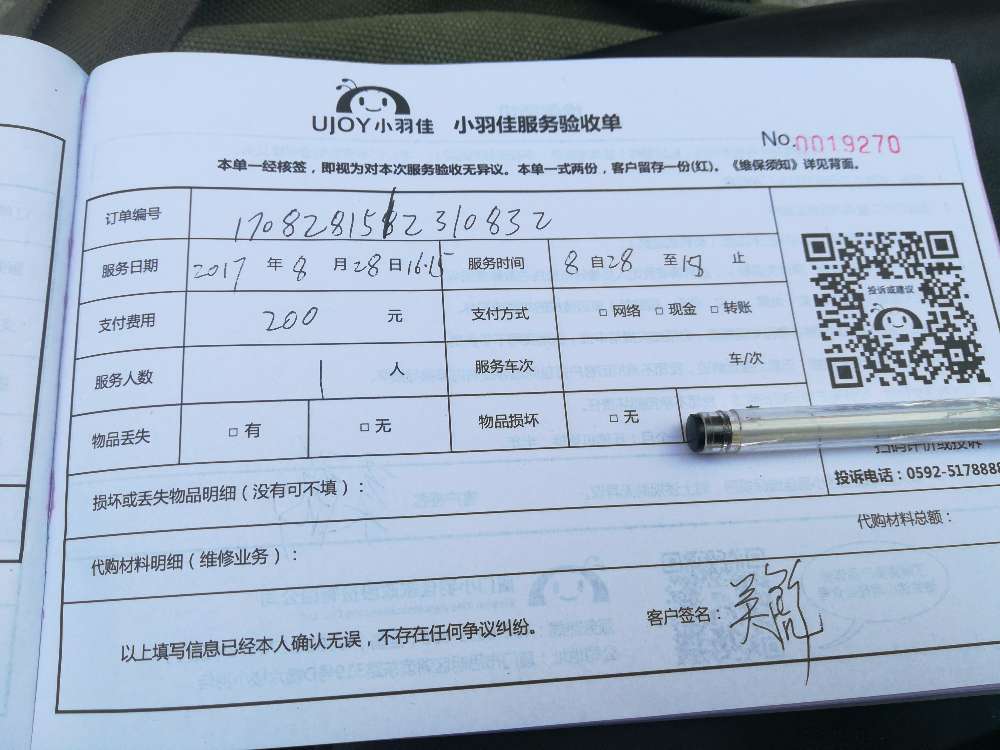 UJOY小羽佳 小羽佳服务验收单
No.0019270
本单一经核签，即视为对本次服务验收无异议。本单一式两份，客户留存一份(红)。《维保须知》详见背面。
订单编号 1708281582310832
服务日期 2017 年 8 月 28 日 16.15 服务时间 8 自 28 至 18 止
投诉或建议
支付费用 200 元 支付方式 □ 网络 □ 现金 □ 转账
服务人数 1 人 服务车次 车/次
物品丢失 □ 有 □ 无 物品损坏 □ 无
扫码评价或投诉
投诉电话：0592-5178888
损坏或丢失物品明细（没有可不填）：
代购材料总额：
代购材料明细（维修业务）：
以上填写信息已经本人确认无误，不存在任何争议纠纷。 客户签名：